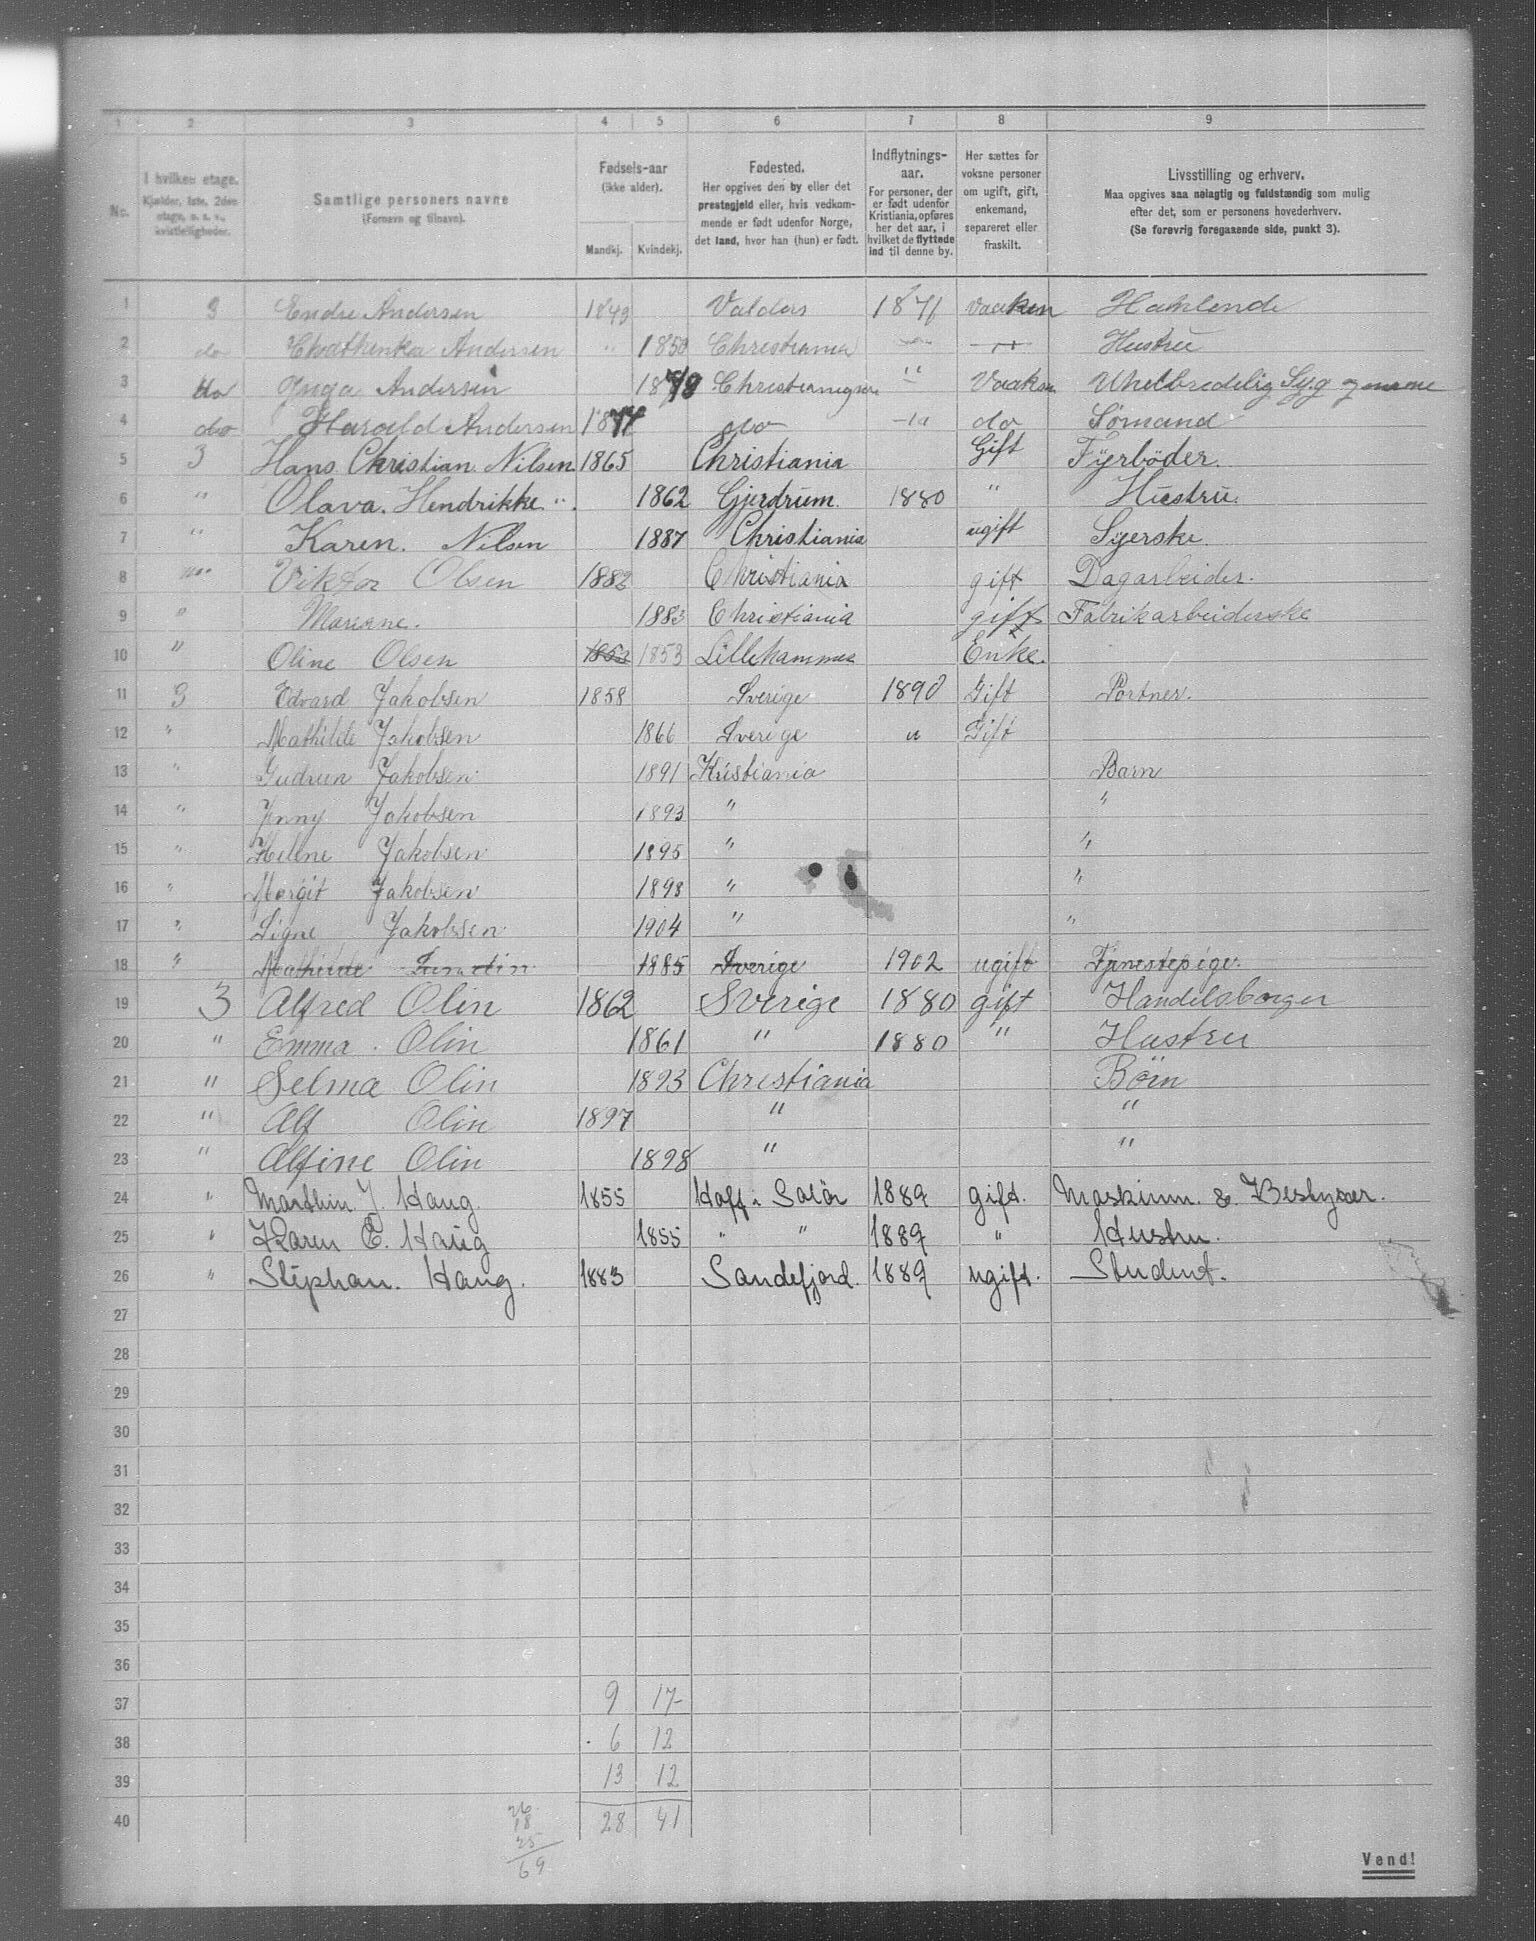 1 2 3 4 5 6 7 8 9
No.
I hvilken etage.
Kjælder, 1ste, 2den etage, o. s. v., kvistleiligheder.
Samtlige personers navne
(Fornavn og tilnavn).
Fødsels-aar
(ikke alder).
Mandkj. Kvindekj.
Fødested.
Her opgives den by eller det prestegjeld eller, hvis vedkommende er født udenfor Norge, det land, hvor han (hun) er født.
Indflytnings-aar.
For personer, der er født udenfor Kristiania, opføres her det aar, i hvilket de flyttede ind til denne by.
Her sættes for voksne personer om ugift, gift, enkemand, separeret eller fraskilt.
Livsstilling og erhverv.
Maa opgives saa nøiagtig og fuldstændig som mulig efter det, som er personens hovederhverv.
(Se forøvrig foregaaende side, punkt 3).
1 3 Endre Andersen 1849 Valders 1871 Vaaken
2 do Andersen " 1850 Christiania Hustru
3 do Inga Andersen Christiania " Vaaken Uhelbredelig Syg
4 do Harald Andersen 1874 do do Sømand
5 3 Hans Christian Nilsen 1865 Christiania Gift Fyrbøder.
6 " Olava. Hendrikke " 1862 Gjerdrum 1880 " Hustru.
7 " Karen. Nilsen 1887 Christiania ugift Syerske
8 " Viktor Olsen 1882 Christiania gift Dagarbeider.
9 " Mariane. 1883 Christiania gift Fabrikarbeiderske
10 " Oline Olsen 1853 1853 Lillehammer Enke.
11 3 Edvard Jakobsen 1858 Sverige 1890 Gift Portner.
12 " Mathilde Jakobsen 1866 Sverige " Gift
13 " Gudrun Jakobsen 1891 Kristiania Barn
14 " Jenny Jakobsen 1893 " "
15 " Helene Jakobsen 1895 " "
16 " Margit Jakobsen 1898 " "
17 " Signe Jakobsen 1904 " "
18 " Mathilde 1885 Sverige 1902 ugift Tjenestepige.
19 3 Alfred Olin 1862 Sverige 1880 gift Handelsborger
20 " Emma. Olin 1861 " 1880 " Hustru
21 " Selma Olin 1893 Christiania Börn
22 " Alf Olin 1897 " "
23 " Alfine Olin 1898 " "
24 " Marthin J. Haug. 1855 Hoff i Solör 1889 gift. Maskinm. & Bestyrer.
25 " Karen E. Haug 1855 " " 1889 " Hustru.
26 " Stephan. Haug. 1883 Sandefjord. 1889 ugift. Student.
27
28
29
30
31
32
33
34
35
36
37 9 17
38 6 12
39 13 12
40 28 41
26
18
25
69
Vend!